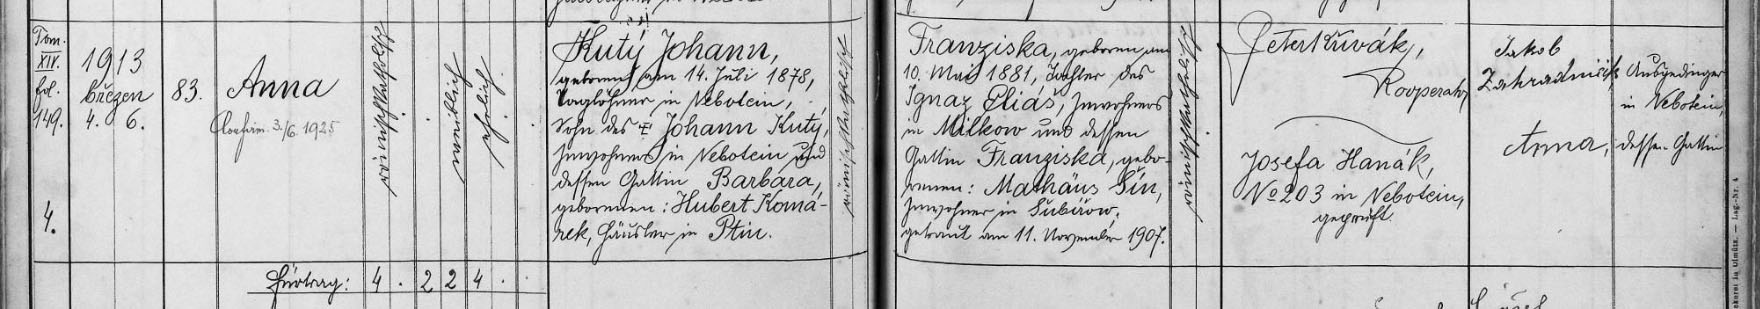 Tom.
XIV.
fol.
149.
4.
1913
březen
4. 6.
83.
Anna
Confirm. 3/6. 1925
römischkatholisch
weiblich
ehelich
Kutý Johann,
geboren am 14. Juli 1878,
Taglöhner in Nebotein,
Sohn des † Johann Kutý,
Inwohners in Nebotein und
dessen Gattin Barbara,
geborenen: Hubert Komá-
rek, Häusler in Ptin.
römischkatholisch
Franziska, geboren am
10. Mai 1881, Tochter des
Ignaz Eliáš, Inwohners
in Milkow und dessen
Gattin Franziska, gebo-
renen: Mathäus Šín,
Inwohner in Šubířow,
getraut am 11. November 1907.
römischkatholisch
Peter
Kooperator
Josefa Hanák,
No 203 in Nebotein,
geprüft.
Jakob
Zahradníček,
Ausgedinger
in Nebotein,
Anna,
dessen Gattin
Fürtrag: 4 . 2 2 4 .
in Olmütz. — Lag.-Nr. 4